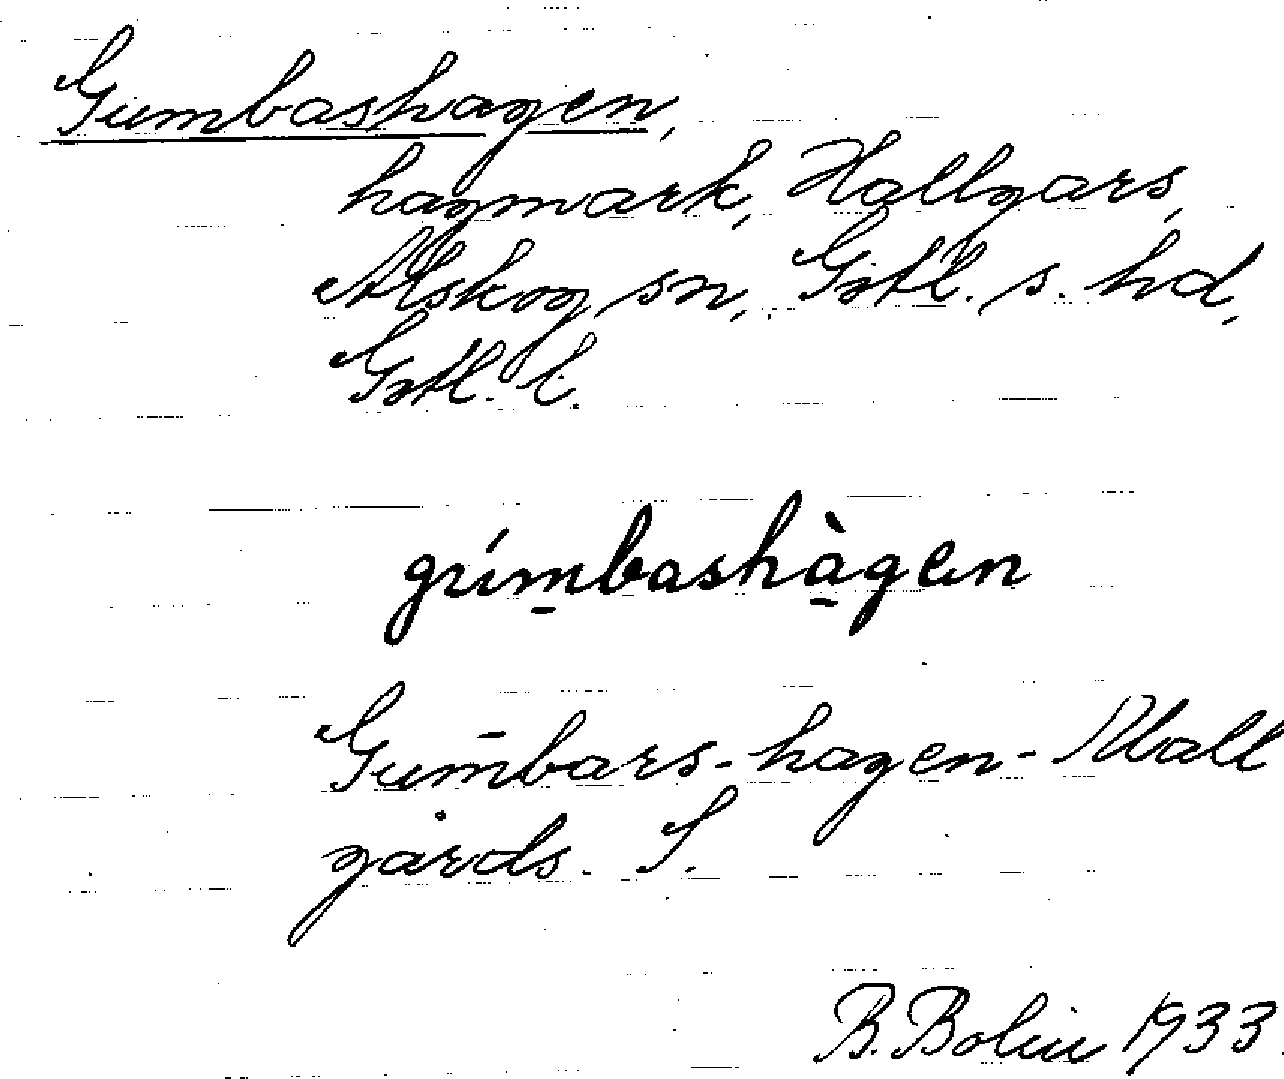 Gumbashagen,
hagmark, Hallgars,
Alskog sn, Gotl. s. hd,
Gotl. l.
gúmbashàgen
Gumbars-hagen-Hall
gårds. S.
B. Bolin 1933.